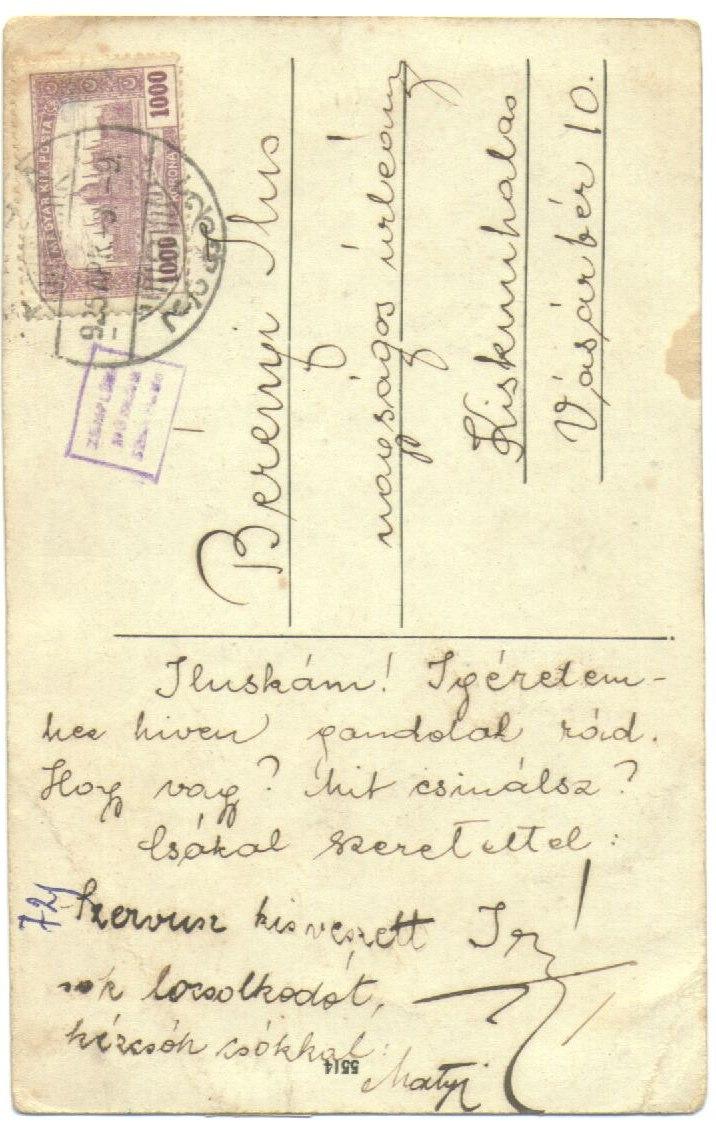 1000
MAGYAR KIR. POSTA
1000 KORONA
925 APR. -9
Berenyi Ilus
nagyságos úrleány
Kiskunhalas
Vásártér 10.
Iluskám! Igéretem-
hez hiven gondolok rád.
Hogy vagy? Mit csinálsz?
Csókol szeretettel:
Szervusz kisveszett
sok locsolkodót,
kézcsók csókkal:
Matyi
5514